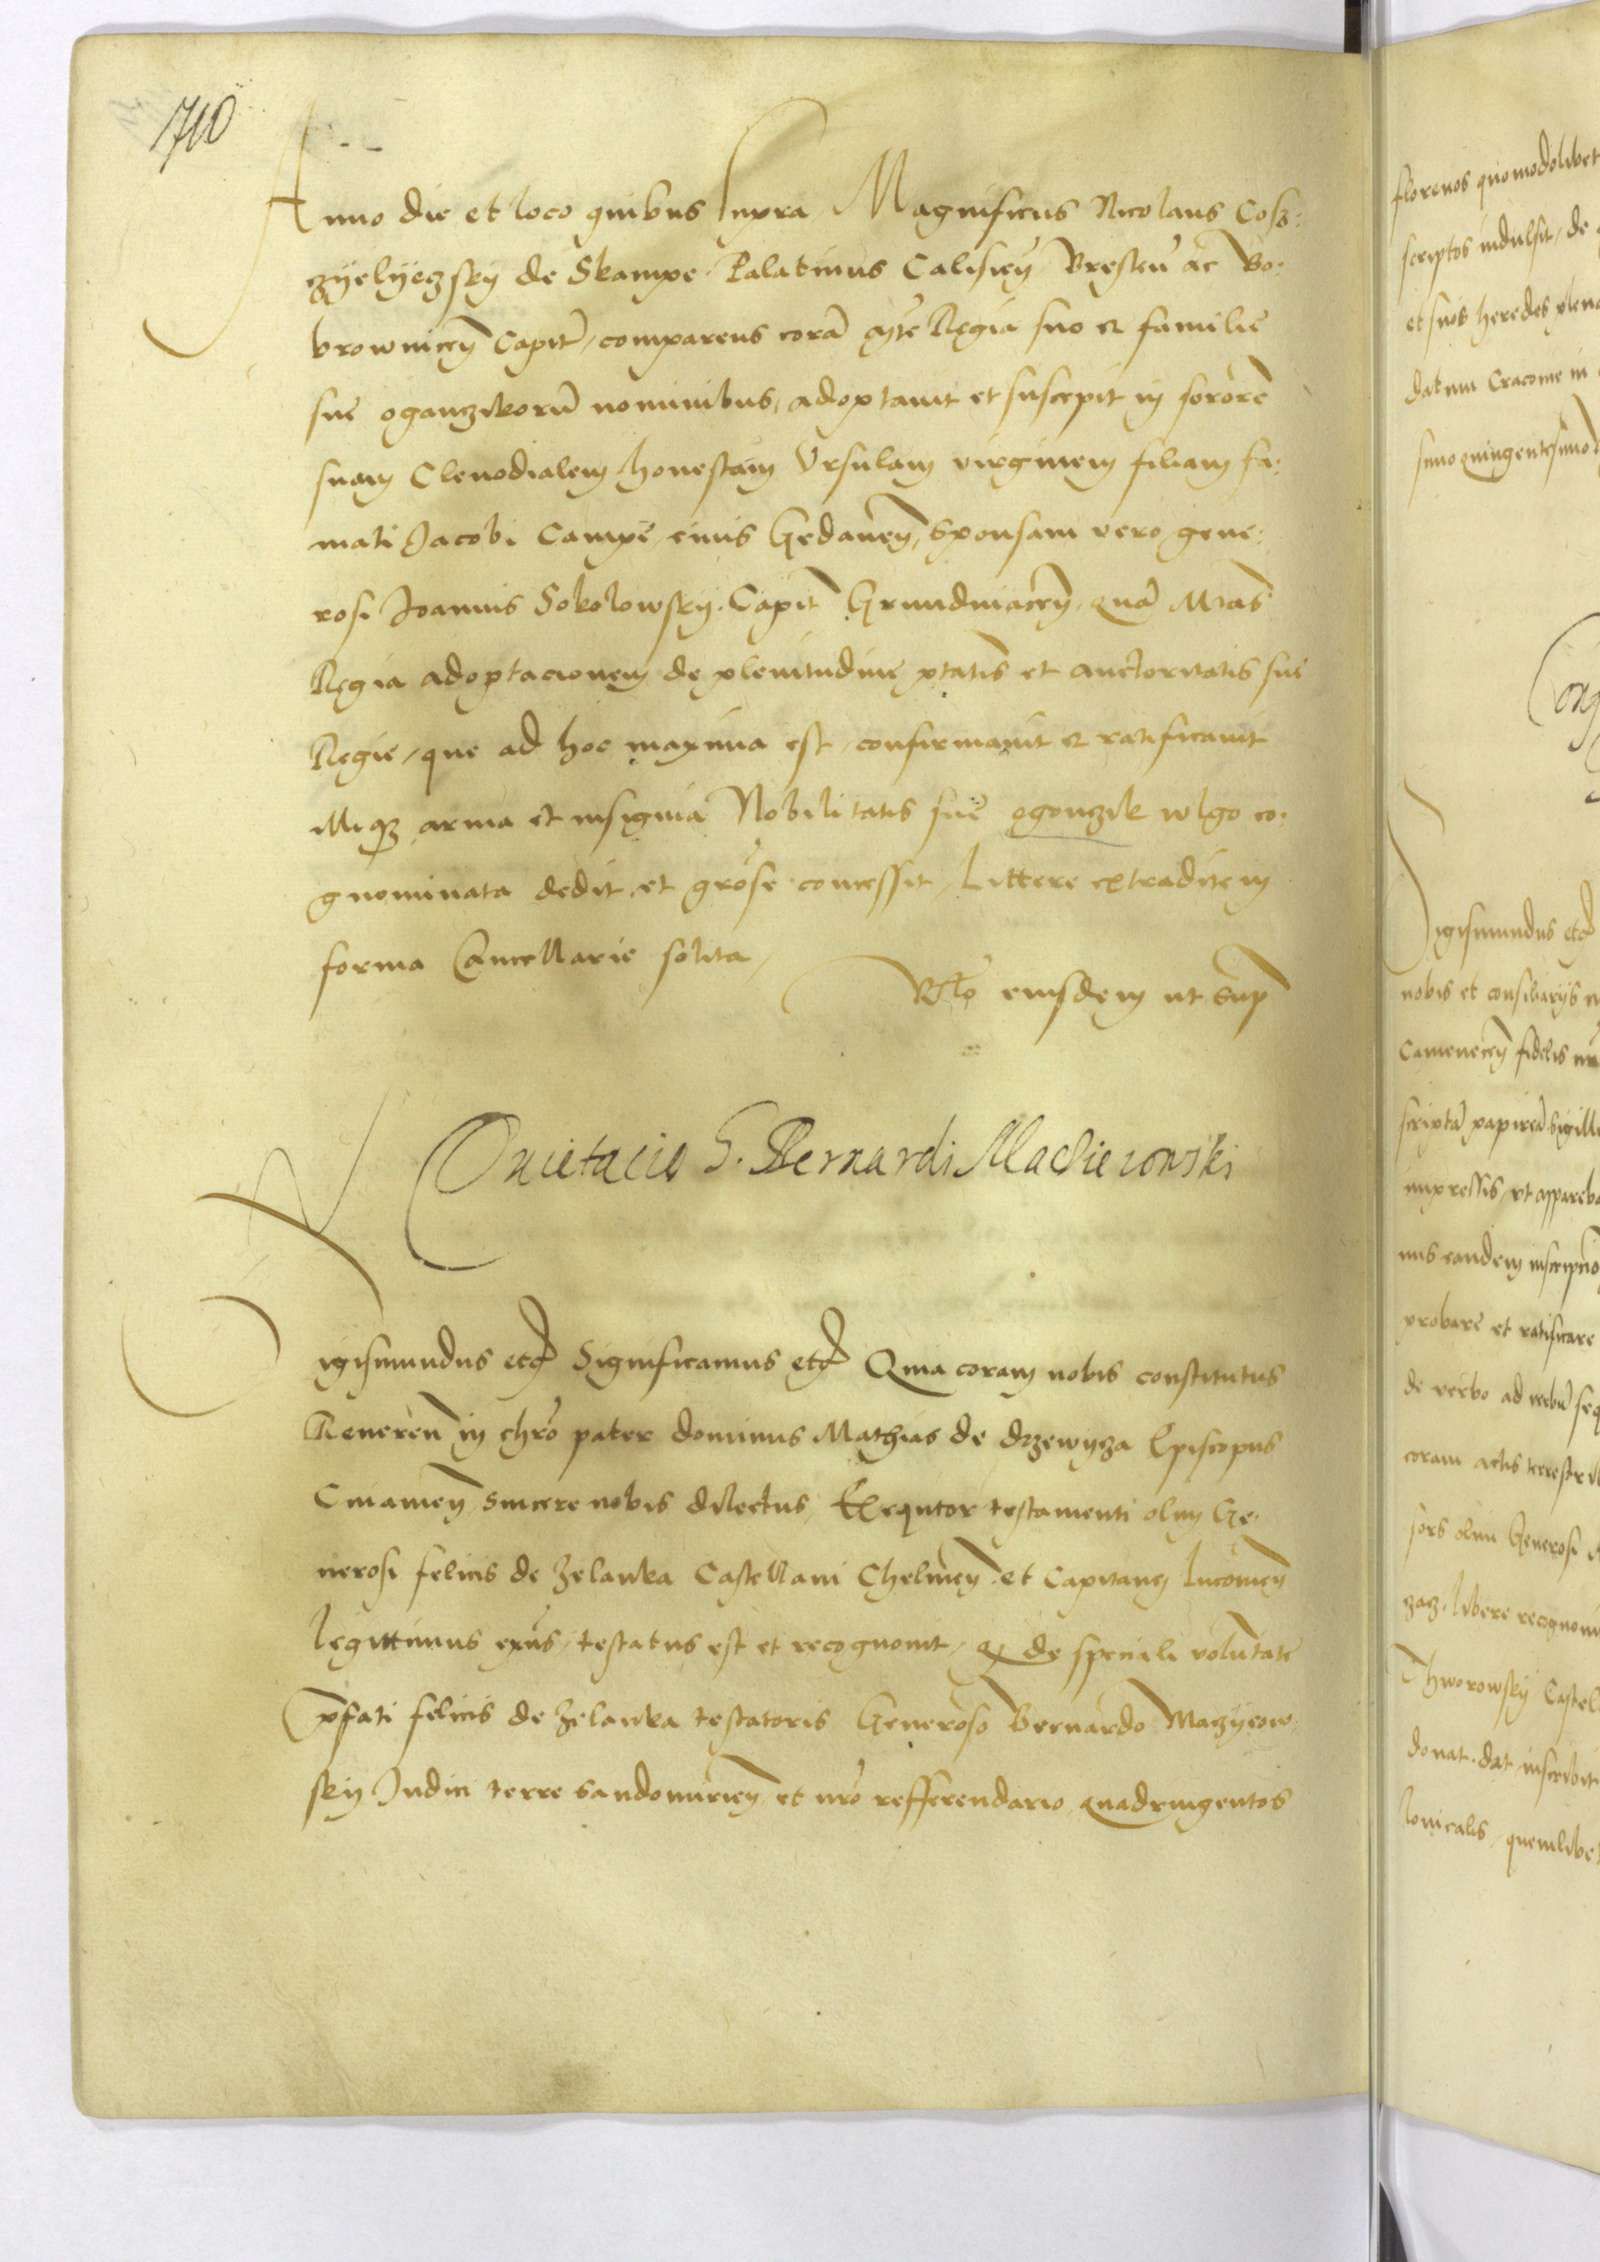 710
Anno die et loco quibus supra Magnificus Nicolaus Cosz:
czÿelÿeczskÿ de Skampe Palatinus Calisieñ Bresteñ ac Bo:
browniceñ Capit̃, comparens corã Mte Regia suo et familie
sue oganczikorũ nominibus, adoptavit et suscepit in sororẽ
suam Clenodialem honestam Ursulam virginem filiam fa:
mati Jacobi Campe civis Gedaneñ, sponsam vero gene:
rosi Joannis Sokolowskÿ Capit̃ Grundniaceñ, quã Mtas
Regia adoptacionem de plenitudine ptatis et auctoritatis sue
Regie, que ad hoc maxima est, confirmavit et ratificavit
illiqꝫ arma et insignia Nobilitatis sue ogonczik wlgo co:
gnominata dedit et grose concessit, Littere extradite in
forma Cancellarie solita
Rlo eiusdem ut sup
Quietacio G. Bernardi Macieiowski
Sigismundus etc Significamus etc Quia coram nobis constitutus
Reveren in chro pater dominus Mathias de drzewycza Episcopus
Cuiavieñ sincere nobis dilectus, Exequtor testamenti olim Ge:
nerosi felicis de Zelanka Castellani Chelmeñ et Capitanei Lucovieñ
legittimus exñs, testatus est et recognovit, q de speciali voluntate
pfati felicis de Zelanka testatoris Generoso Bernardo Maczÿeow
skÿ Judici terre Sandomirieñ et nro refferendario quadringentos
florenos quomodolibet
scriptos indulsit, de
et suos heredes plena
datum Cracovie in
simo quingentesimo
Sigismundus etc
nobis et consiliarÿs
Cameneceñ fidelis
scriptã papireã sigill
impressis, ut appareba
nus eandem inscripcio
probare et ratificare
de verbo ad verbũ seq
coram actis terrestri
sors olim Generosi
libere recognovi
Thworowskÿ Castel
donat. dat inscribit
quemlibet